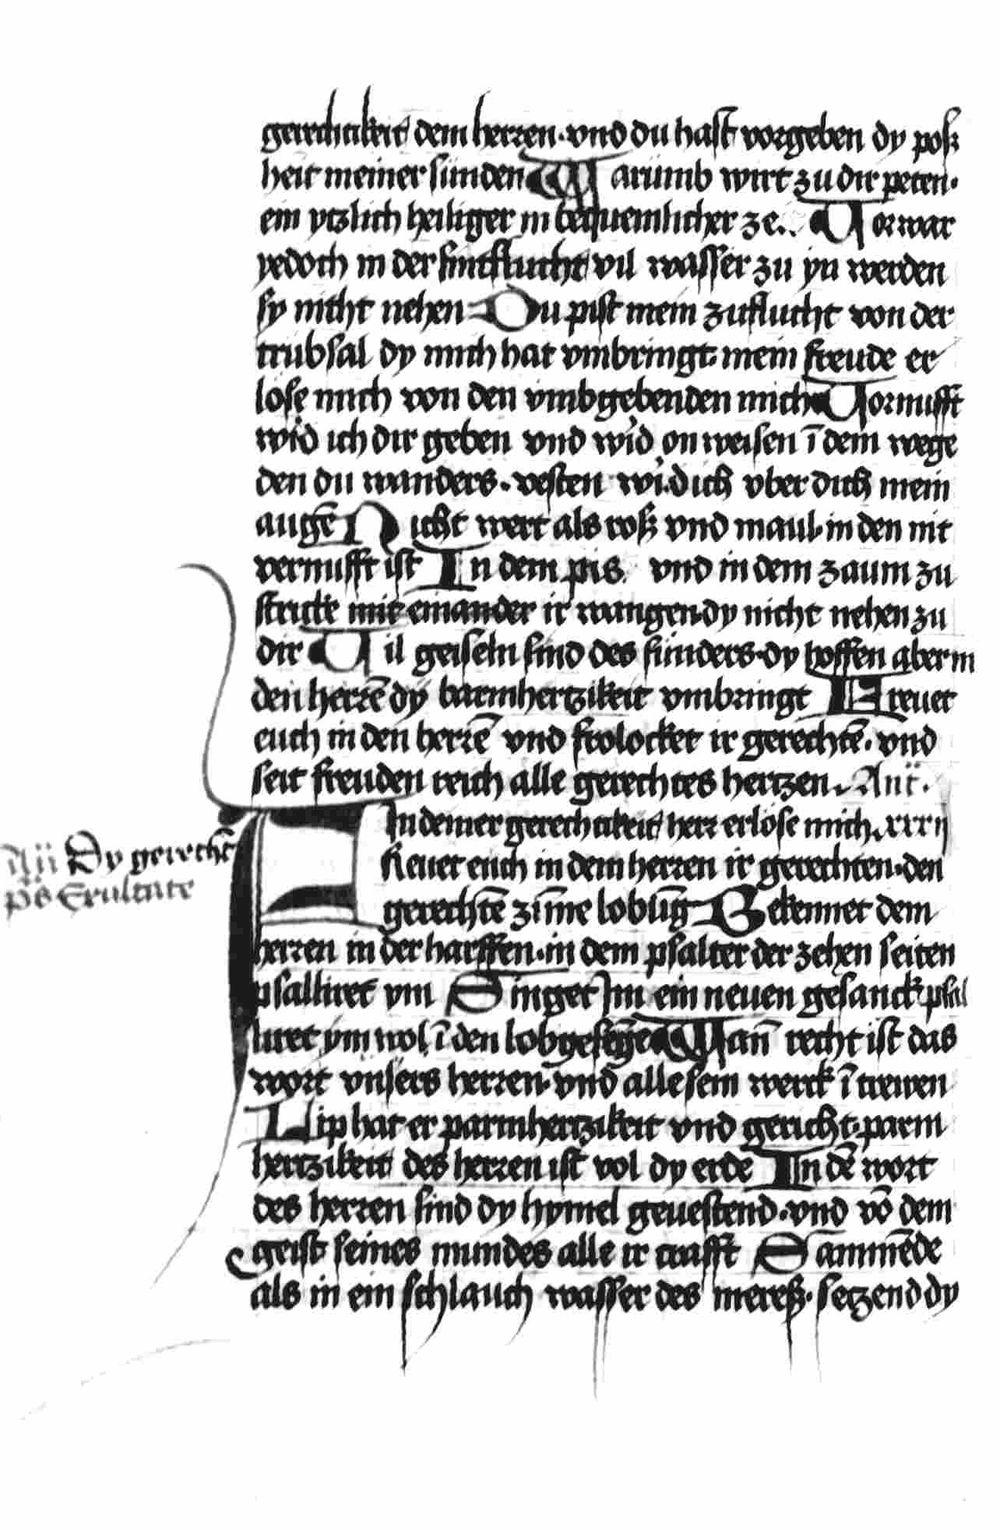 gerechtikeit dem herren · vnd du hast vorgeben dy posz
heit meiner sunden Warumb wirt zu dir peten ·
ein ytzlich heiliger in bequemlicher ze.. Vorwar
yedoch in der sintflucht vil wasser zu yn werden
sy nicht nehen Du pist mein zuflucht von der
trubsal dy mich hat vmbringt · mein freude er
lose mich von den vmbgebenden mich Vornufft
wi'd ich dir geben vnd wi'd onweisen ī dem wege
den du wanders · vesten wi'd ich vber dich mein
augē Nicht wert als rosz vnd maul · in den nit
vernufft ist In dem pis vnd in dem zaum zu
stricke mit einander ir wangen · dy nicht nehen zu
dir Vil geiseln sind des sunders · dy hoffen aber in
den herrē dy barmhertzikeit vmbringt Freuet
euch in den herrē vnd frolocket ir gerechtē · vnd
seit freuden reich alle gerechtes hertzen · Anti ·
In deiner gerechtikeit herr erlose mich · xxxij
Freuet euch in dem herren ir gerechten · den
gerechtē zīme lobūg Bekennet dem
herren in der harffen · in dem psalter der zehen seiten
psalliret ym Singet Im ein neuen gesanck · psal
liret ym wol ī den lobgesēge Wan̄ recht ist das
wort vnsers herren · vnd alle sein werck ī trewen
Lip hat er parmhertzikeit vnd gericht · parm
hertzikeit des herren ist vol dy erde In dē wort
des herren sind dy hymel geuestend · vnd vō dem
geist seines mundes alle ir crafft Sammēde
als in ein schlauch wasser des meresz · setzend dy
Dy gerechtē
ps Exultate